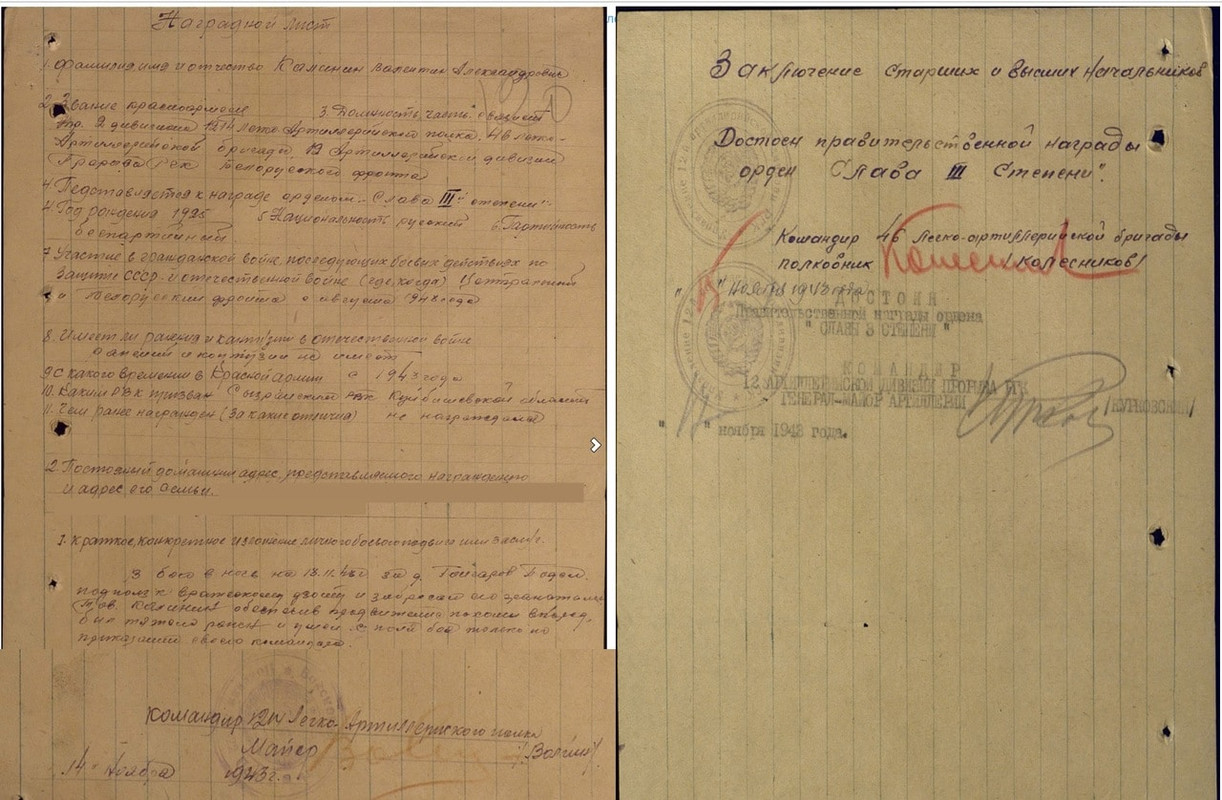 Наградной лист
1. Фамилия имя и отчество Калинин Валентин Александрович
2. Звание красноармеец 3. Должность, часть
2 дивизиона 1214 легко Артиллерийского полка 46 легко-
Артиллерийской бригады 12 Артиллерийской дивизии
Прорыва РГК Белорусского фронта
4. Педставляется к награде орденом "Слава III й степени"
4. Год рождения 1925 5 Национальность русский 6. Партийность
беспартийный
7. Участие в гражданской войне, последующих боевых действиях по
защите СССР и отечественной войне (где, когда) Центральный
и Белорусский фронта с августа 1943 года
8. Имеет ли ранения и контузии в отечественной войне
ранений и контузии не имеет
9. С какого времени в Красной армии с 1943 года
10. Каким РВК призван Сызранским РВК Куйбышевской области
11. Чем ранее награжден (за какие отличия) не награждался
2. Постоянный домашний адрес, представляемого награждению
и адрес его семьи.
1. Краткое, конкретное изложение личного боевого подвига или заслуг.
В бою в ночь на 13.11.43г за д.
подполз к вражескому дзоту и забросал его гранатами
Тов. Калинин обеспечив продвижение пехоты вперед,
был тяжело ранен и ушел с поля боя только по
приказанию своего командира.
Командир 1214 Легко Артиллерийского полка
Майор
14 Ноября 1943г.
Заключение Старших и высших Начальников
Достоен правительственной награды
орден "Слава III Степени".
Командир 46 Легко-артиллерийской бригады
полковник /Колесников/
" " Ноября 1943 года
ДОСТОИН
Правительственной награды ордена
" СЛАВЫ 3 СТЕПЕНИ "
КОМАНДИР
12 АРТИЛЛЕРИЙСКОЙ ДИВИЗИИ ПРОРЫВА РГК
ГЕНЕРАЛ-МАЙОР АРТИЛЛЕРИИ /КУРКОВСКИЙ/
" " ноября 1943 года.